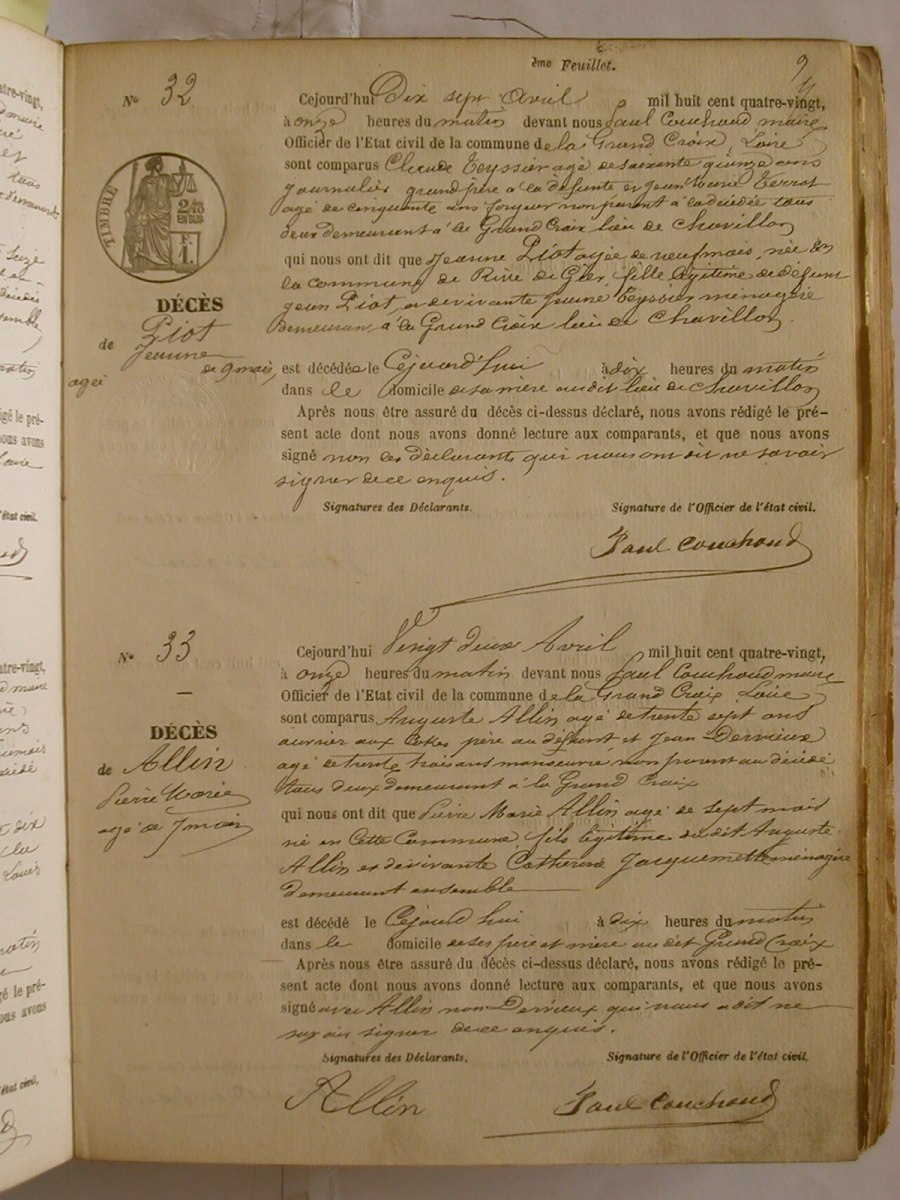 ème Feuillet.
9
N° 32
Cejourd'hui Dix sept Avril mil huit cent quatre-vingt,
à onze heures du matin devant nous Paul Couchoud maire
Officier de l'Etat civil de la commune de la Grand Croix, Loire
sont comparus Claude Teyssier agé de soixante quinze ans
journalier grand père a la défunte et Jean Marie Terrat
agé de cinquante ans forgeur non parent à la décédée tous
deux demeurant à la Grand Croix lieu de Chavillon
qui nous ont dit que Jeanne Piot agée de neuf mois, née en
la commune de Rive de Gier, fille légitime de défunt
Jean Piot, et de vivante Jeanne Teyssier ménagère
demeurant à la Grand Croix lieu de Chavillon
TIMBRE
2/10
EN SUS
F.
1.
DÉCÈS
de Piot
Jeanne
agée de 9 mois,
est décédée le Cejourd'hui à dix heures du matin
dans le domicile de sa mère au dit lieu de Chavillon
Après nous être assuré du décès ci-dessus déclaré, nous avons rédigé le pré-
sent acte dont nous avons donné lecture aux comparants, et que nous avons
signé non les déclarants qui nous ont dit ne savoir
signer de ce enquis.
Signatures des Déclarants. Signature de l'Officier de l'état civil.
Paul Couchoud
N° 33
Cejourd'hui Vingt deux Avril mil huit cent quatre-vingt,
à onze heures du matin devant nous Paul Couchoud maire
Officier de l'Etat civil de la commune de la Grand Croix Loire
sont comparus Auguste Allin agé de trente sept ans
ouvrier aux Cokes père au défunt et Jean Dervieux
agé de trente trois ans manoeuvre non parent au décédé
tous deux demeurant à la Grand Croix
DÉCÈS
de Allin
Pierre Marie
agé de 7 mois
qui nous ont dit que Pierre Marie Allin agé de sept mois
né en Cette Commune fils légitime du dit Auguste
Allin et de vivante Catherine Jacquemette ménagère
demeurant ensemble
est décédé le Cejourd'hui à dix heures du matin
dans le domicile de ses père et mère au dit Grand Croix
Après nous être assuré du décès ci-dessus déclaré, nous avons rédigé le pré-
sent acte dont nous avons donné lecture aux comparants, et que nous avons
signé avec Allin non Dervieux qui nous a dit ne
savoir signer de ce enquis.
Signatures des Déclarants. Signature de l'Officier de l'état civil.
Allin
Paul Couchoud